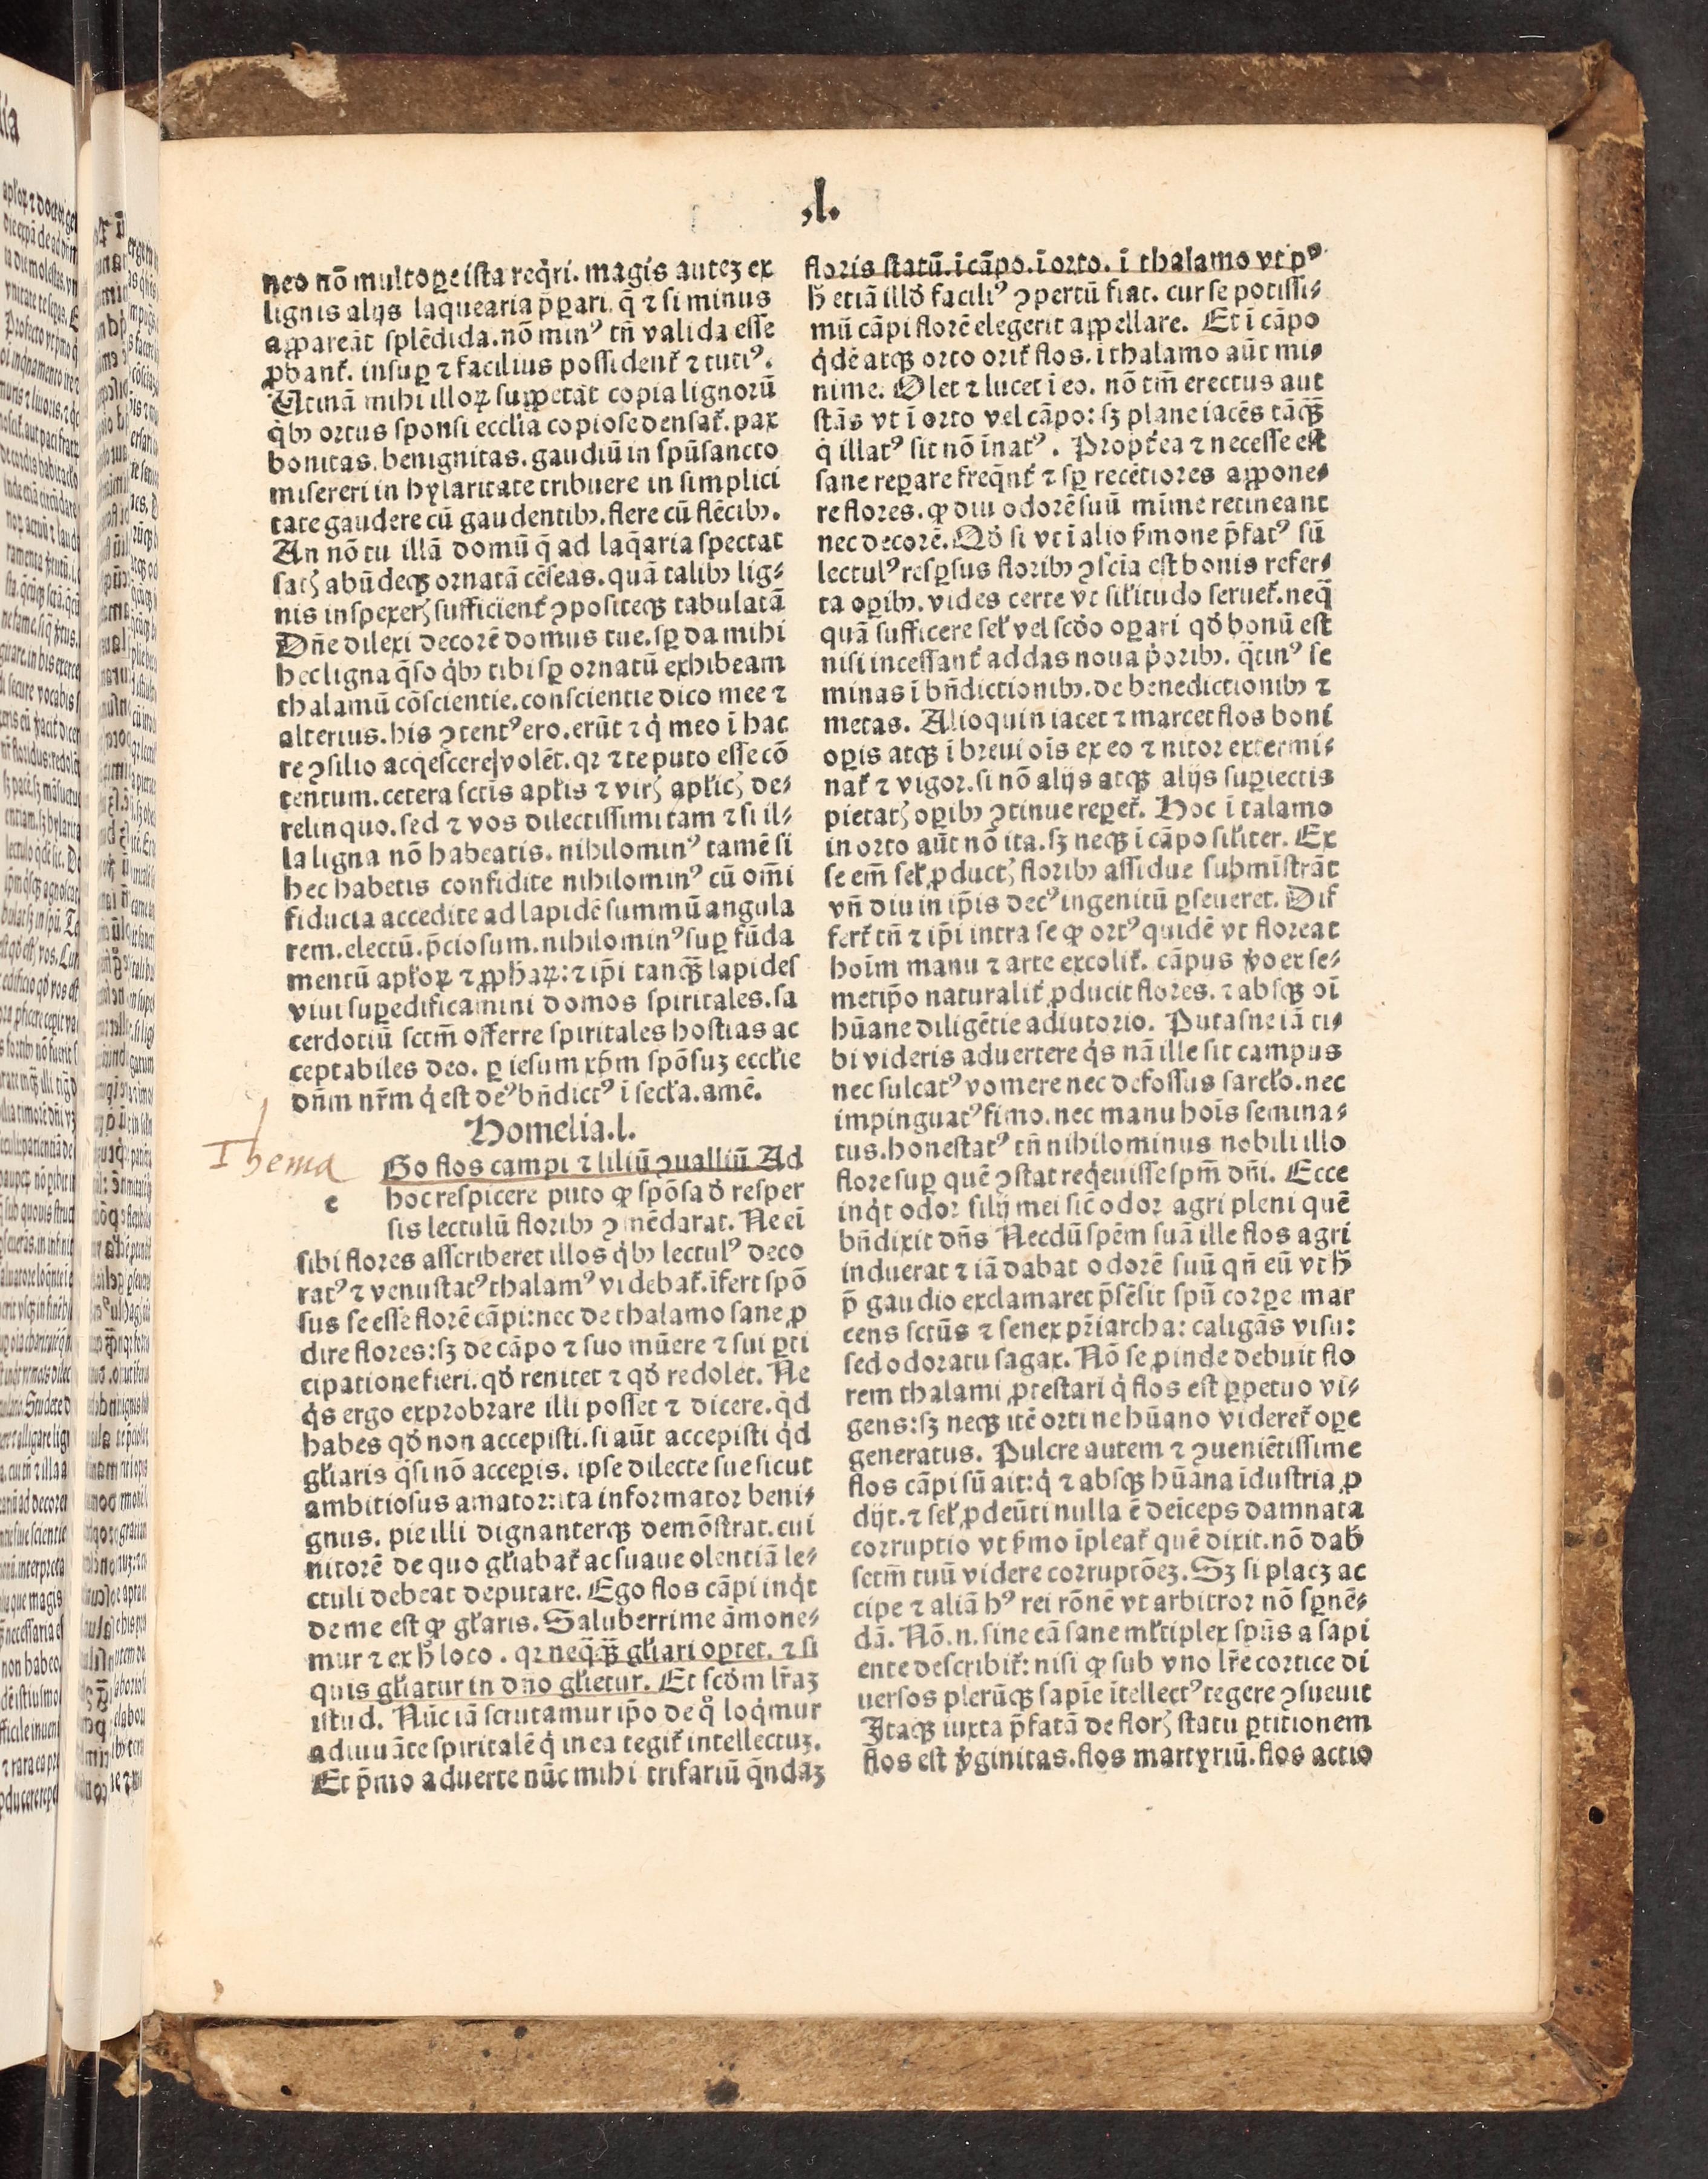 .l.
neo nō multoꝑe ista reqͥri. magis auteꝫ ex
lignis alijs laquearia p̄ꝑari. q̄ ⁊ si minus
aꝓpareāt splēdida. nō minꝰ tn̄ valida esse
ꝓbant᷑. insuꝑ ⁊ facilius possident᷑ ⁊ tutiꝰ.
Utinā mihi illoꝝ suppetāt copia lignorū
qͥbꝫ ortus sponsi eccl̓ia copiose densat᷑. pax
bonitas. benignitas. gaudiū in spū sancto
misereri in hylaritate tribuere in simplici
tate gaudere cū gaudentibꝫ. flere cū flētibꝫ.
An nō tu illā domū q̄ ad laq̄aria spectat
satꝭ abūdeqꝫ ornatā cēseas. quā talibꝫ lig⸗
nis inspexerꝭ sufficient᷑ ꝯpositeqꝫ tabulatā
Dn̄e dilexi decorē domus tue. sꝑ da mihi
hec ligna q̄so qͥbꝫ tibi sꝑ ornatū exhibeam
thalamū cōscientie. conscientie dico mee ⁊
alterius. his ꝯtentꝰ ero. erūt ⁊ qͥ meo ī hac
re ꝯsilio acqͥescere volēt. qꝛ ⁊ te puto esse cō
tentum. cetera sctis apl̓is ⁊ virꝭ apl̓icꝭ de⸗
relinquo. sed ⁊ vos dilectissimi tam ⁊ si il⸗
la ligna nō habeatis. nihilominꝰ tamē si
hec habetis confidite nihilominꝰ cū om̄i
fiducia accedite ad lapidē summū angula
rem. electū. p̄ciosum. nihilominꝰ suꝑ fūda
mentū apl̓oꝝ ⁊ ꝓphaꝝ: ⁊ ip̄i tanqꝫ̄ lapides
viui suꝑedificamini domos spiritales. sa
cerdotiū sctm̄ offerre spiritales hostias ac
ceptabiles deo. ꝑ iesum xp̄m spōsuꝫ eccl̓ie
dn̄m nr̄m qͥ est deꝰ bn̄dictꝰ ī secl̓a. amē.
Homelia.l.
Thema
Go flos campi ⁊ liliū ꝯualliū Ad
e hoc respicere puto ꝙ spōsa ꝺ̓ resper
sis lectulū floribꝫ ꝯmēdarat. Ne eī
sibi flores asscriberet illos qͥbꝫ lectulꝰ deco
ratꝰ ⁊ venustatꝰ thalamꝰ videbat᷑. īfert spō
sus se esse florē cāpi: nec de thalamo sane ꝓ
dire flores: sꝫ de cāpo ⁊ suo mūere ⁊ sui ꝑti
cipatione fieri. qꝺ̓ renitet ⁊ qꝺ̓ redolet. Ne
qͥs ergo exprobrare illi posset ⁊ dicere. qͥd
habes qꝺ̓ non accepisti. si aūt accepisti qͥd
gl̓iaris q̄si nō acceꝑis. ipse dilecte sue sicut
ambitiosus amator: ita informator beni⸗
gnus. pie illi dignanterqꝫ demōstrat. cui
nitorē de quo gl̓iabat᷑ ac suaue olentiā le⸗
ctuli debeat deputare. Ego flos cāpi inqͥt
de me est ꝙ gl̓aris. Saluberrime āmone⸗
mur ⁊ ex h̓ loco. qꝛ neq̄qꝫ̄ gl̓iari oꝑtet. ⁊ si
quis gl̓iatur in dn̄o gl̓ietur. Et scꝺ̓m lr̄aꝫ
istud. Nūc iā scrutamur ip̄o de qͦ loqͥmur
adiuuāte spiritalē qͥ in ea tegit᷑ intellectuꝫ.
Et p̄mo aduerte nūc mihi trifariū qͣndaꝫ
floris statū. ī cāpo. ī orto. ī thalamo vt pꝰ
h̓ etiā illꝺ̓ faciliꝰ ꝯpertū fiat. cur se potissi⸗
mū cāpi florē elegerit appellare. Et ī cāpo
qͥdē atqꝫ orto orit᷑ flos. ī thalamo aūt mi⸗
nime. Olet ⁊ lucet ī eo. nō tm̄ erectus aut
stās vt ī orto vel cāpo: sꝫ plane iacēs tāqꝫ̄
qͥ illatꝰ sit nō īnatꝰ. Propt᷑ea ⁊ necesse est
sane reꝑare freq̄nt᷑ ⁊ sꝑ recētiores appone⸗
re flores. ꝙ diu odorē suū mīime retineant
nec decorē. Qꝺ̓ si vt ī alio s̓mone p̄fatꝰ sū
lectulꝰ resꝑsus floribꝫ ꝯscīa est bonis refer⸗
ta oꝑibꝫ. vides certe vt sil̓itudo seruet᷑. neq̄
quā sufficere sel̓ vel scꝺ̓o oꝑari qꝺ̓ bonū est
nisi incessant᷑ addas noua pͥoribꝫ. q̄tinꝰ se
minas ī bn̄dictionibꝫ. de benedictionibꝫ ⁊
metas. Alioquin iacet ⁊ marcet flos boni
oꝑis atqꝫ ī breui oīs ex eo ⁊ nitor extermi⸗
nat᷑ ⁊ vigor. si nō alijs atqꝫ alijs suꝑiectis
pietatꝭ oꝑibꝫ ꝯtinue reꝑet᷑. Hoc ī talamo
in orto aūt nō ita. sꝫ neqꝫ ī cāpo sil̓iter. Ex
se em̄ sel̓ ꝓductꝭ floribꝫ assidue submīstrāt
vn̄ diu in ip̄is decꝰ ingenitū ꝑseueret. Dif
fert᷑ tn̄ ⁊ ip̄i intra se ꝙ ortꝰ quidē vt floreat
hoīm manu ⁊ arte excolit᷑. cāpus v̓o ex se⸗
metip̄o naturalit᷑ ꝓducit flores. ⁊ absqꝫ oī
hūane diligētie adiutorio. Putasne iā ti⸗
bi videris aduertere qͥs nā ille sit campus
nec sulcatꝰ vomere nec defossus sarcl̓o. nec
impinguatꝰ fimo. nec manu hoīs semina⸗
tus. honestatꝰ tn̄ nihilominus nobili illo
flore suꝑ quē ꝯstat reqͥeuisse spm̄ dn̄i. Ecce
inqͥt odor filij mei sic̄ odor agri pleni quē
bn̄dixit dn̄s Necdū spēm suā ille flos agri
induerat ⁊ iā dabat odorē suū qn̄ eū vt h̓
p̄ gaudio exclamaret p̄sēsit spū corꝑe mar
cens sctūs ⁊ senex pr̄iarcha: caligās visu:
sed odoratu sagax. Nō se ꝓinde debuit flo
rem thalami ꝓtestari qͥ flos est ꝑpetuo vi⸗
gens: sꝫ neqꝫ itē orti ne hūano videret᷑ oꝑe
generatus. Pulcre autem ⁊ ꝯueniētissime
flos cāpi sū ait: qͥ ⁊ absqꝫ hūana īdustria ꝓ
dijt. ⁊ sel̓ ꝓdeūti nulla ē deīceps damnata
corruptio vt s̓mo īpleat᷑ quē dixit. nō dab̓
sctm̄ tuū videre corruptōeꝫ. Sꝫ si placꝫ ac
cipe ⁊ aliā hꝰ rei rōnē vt arbitror nō sꝑnē⸗
dā. Nō.n. sine cā sane ml̓tiplex spūs a sapi
ente describit᷑: nisi ꝙ sub vno lr̄e cortice di
uersos plerūqꝫ sapīe ītellectꝰ tegere ꝯsueuit
Itaqꝫ iuxta p̄fatā de florꝭ statu ꝑtitionem
flos est v̓ginitas. flos martyriū. flos actio